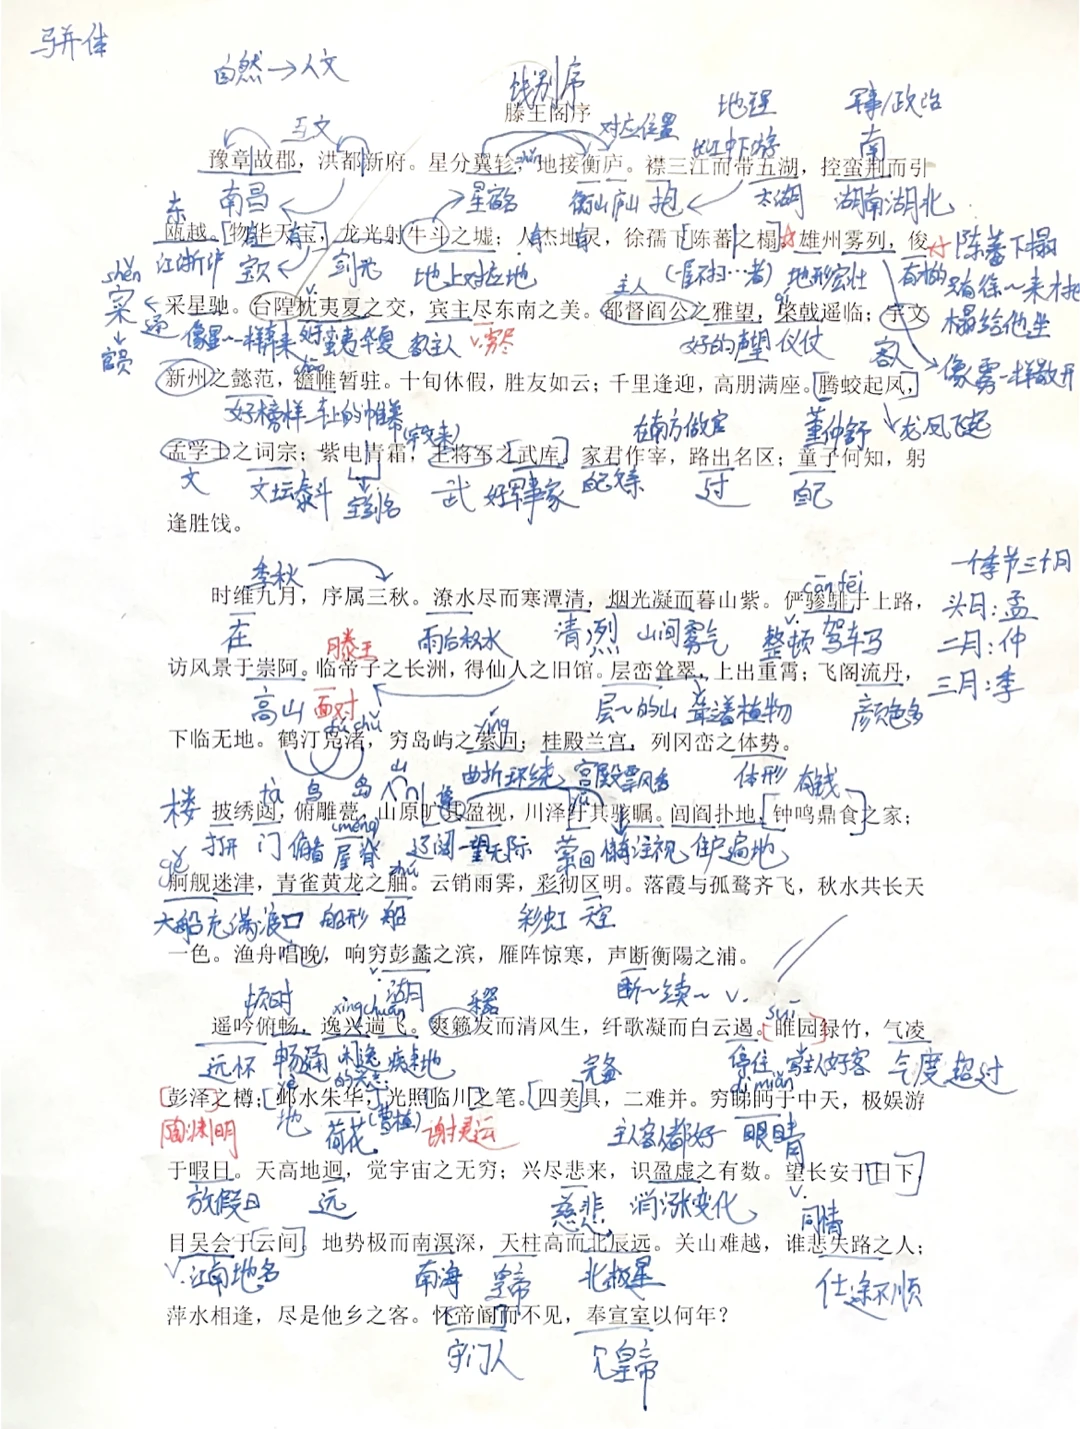 骈体
自然→人文
饯别序
滕王阁序
地理
军事/政治
互文
对应位置
南
豫章故郡，洪都新府。星分翼轸，地接衡庐。襟三江而带五湖，控蛮荆而引
东
南昌
星宿名
衡山庐山
抱
太湖
湖南湖北
瓯越。物华天宝，龙光射牛斗之墟；人杰地灵，徐孺下陈蕃之榻。雄州雾列，俊
江浙沪
宝贝
剑光
地上对应地
主人
地形宏壮
有才的
陈蕃下榻
shěn
寀
官员
采星驰。台隍枕夷夏之交，宾主尽东南之美。都督阎公之雅望，棨戟遥临；宇文
像星一样奔来
蛮夷华夏
客主人
好的声望
仪仗
客人
榻给他坐
新州之懿范，襜帷暂驻。十旬休假，胜友如云；千里逢迎，高朋满座。腾蛟起凤，
好榜样
车上的帷幕
(宇文来)
在南方做官
董仲舒
龙凤飞起
像雾一样散开
孟学士之词宗；紫电青霜，王将军之武库。家君作宰，路出名区；童子何知，躬
文
文坛泰斗
宝剑名
武
好军事家
自己父亲
过
自己
逢胜饯。
季秋
cān fēi
一个季节三个月
时维九月，序属三秋。潦水尽而寒潭清，烟光凝而暮山紫。俨骖騑于上路，
头月：孟
在
滕王
雨后积水
清冽
山间雾气
整顿
驾车马
二月：仲
访风景于崇阿。临帝子之长洲，得仙人之旧馆。层峦耸翠，上出重霄；飞阁流丹，
三月：季
高山
面对
层~的山
耸着植物
颜色多
下临无地。鹤汀凫渚，穷岛屿之萦回；桂殿兰宫，列冈峦之体势。
曲折环绕
体形
有钱
楼
tà
鸟
岛
山
披绣闼，俯雕甍，山原旷其盈视，川泽纡其骇瞩。闾阎扑地，钟鸣鼎食之家；
打开
门
俯看
(méng)
屋脊
辽阔
一望无际
萦回
注视
住户遍地
gě
zhú
舸舰迷津，青雀黄龙之舳。云销雨霁，彩彻区明。落霞与孤鹜齐飞，秋水共长天
大船充满渡口
船形
船
彩虹
天空
一色。渔舟唱晚，响穷彭蠡之滨，雁阵惊寒，声断衡陽之浦。
v.
湖
断~续~
v.
suī
顿时
xìng chuán
乐器
遥吟俯畅，逸兴遄飞。爽籁发而清风生，纤歌凝而白云遏。睢园绿竹，气凌
远怀
畅通
完备
停住
主人好客
气度
超过
彭泽之樽；邺水朱华，光照临川之笔。四美具，二难并。穷睇眄于中天，极娱游
陶渊明
地
荷花
(曹植)
谢灵运
主人客人都好
dì miǎn
眼睛
于暇日。天高地迥，觉宇宙之无穷；兴尽悲来，识盈虚之有数。望长安于日下，
放假日
远
慈悲
消涨变化
v.
同情
目吴会于云间。地势极而南溟深，天柱高而北辰远。关山难越，谁悲失路之人；
v.
江南地名
南海
皇帝
北极星
仕途不顺
萍水相逢，尽是他乡之客。怀帝阍而不见，奉宣室以何年？
守门人
皇帝